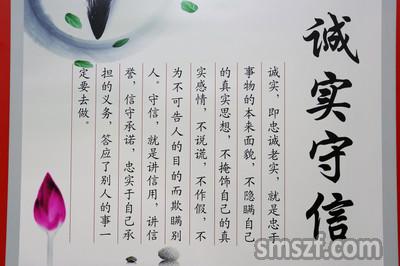 诚实守信
诚实，即忠诚老实，就是忠于
事物的本来面貌，不隐瞒自己
的真实思想，不掩饰自己的真
实感情，不说谎，不作假，不
为不可告人的目的而欺瞒别
人。守信，就是讲信用，讲信
誉，信守承诺，忠实于自己承
担的义务，答应了别人的事一
定要去做。
smszf.com